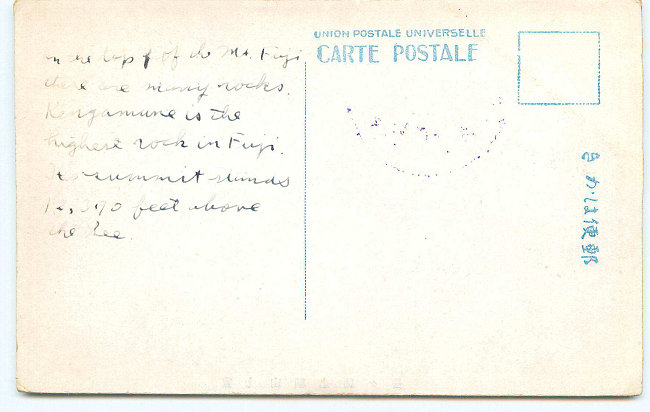 on the top of of the Mt. Fuji
there are many rocks.
Kengamune is the
highest rock in Fuji.
Its summit stands
feet above
the See.
UNION POSTALE UNIVERSELLE
CARTE POSTALE
きかは便郵